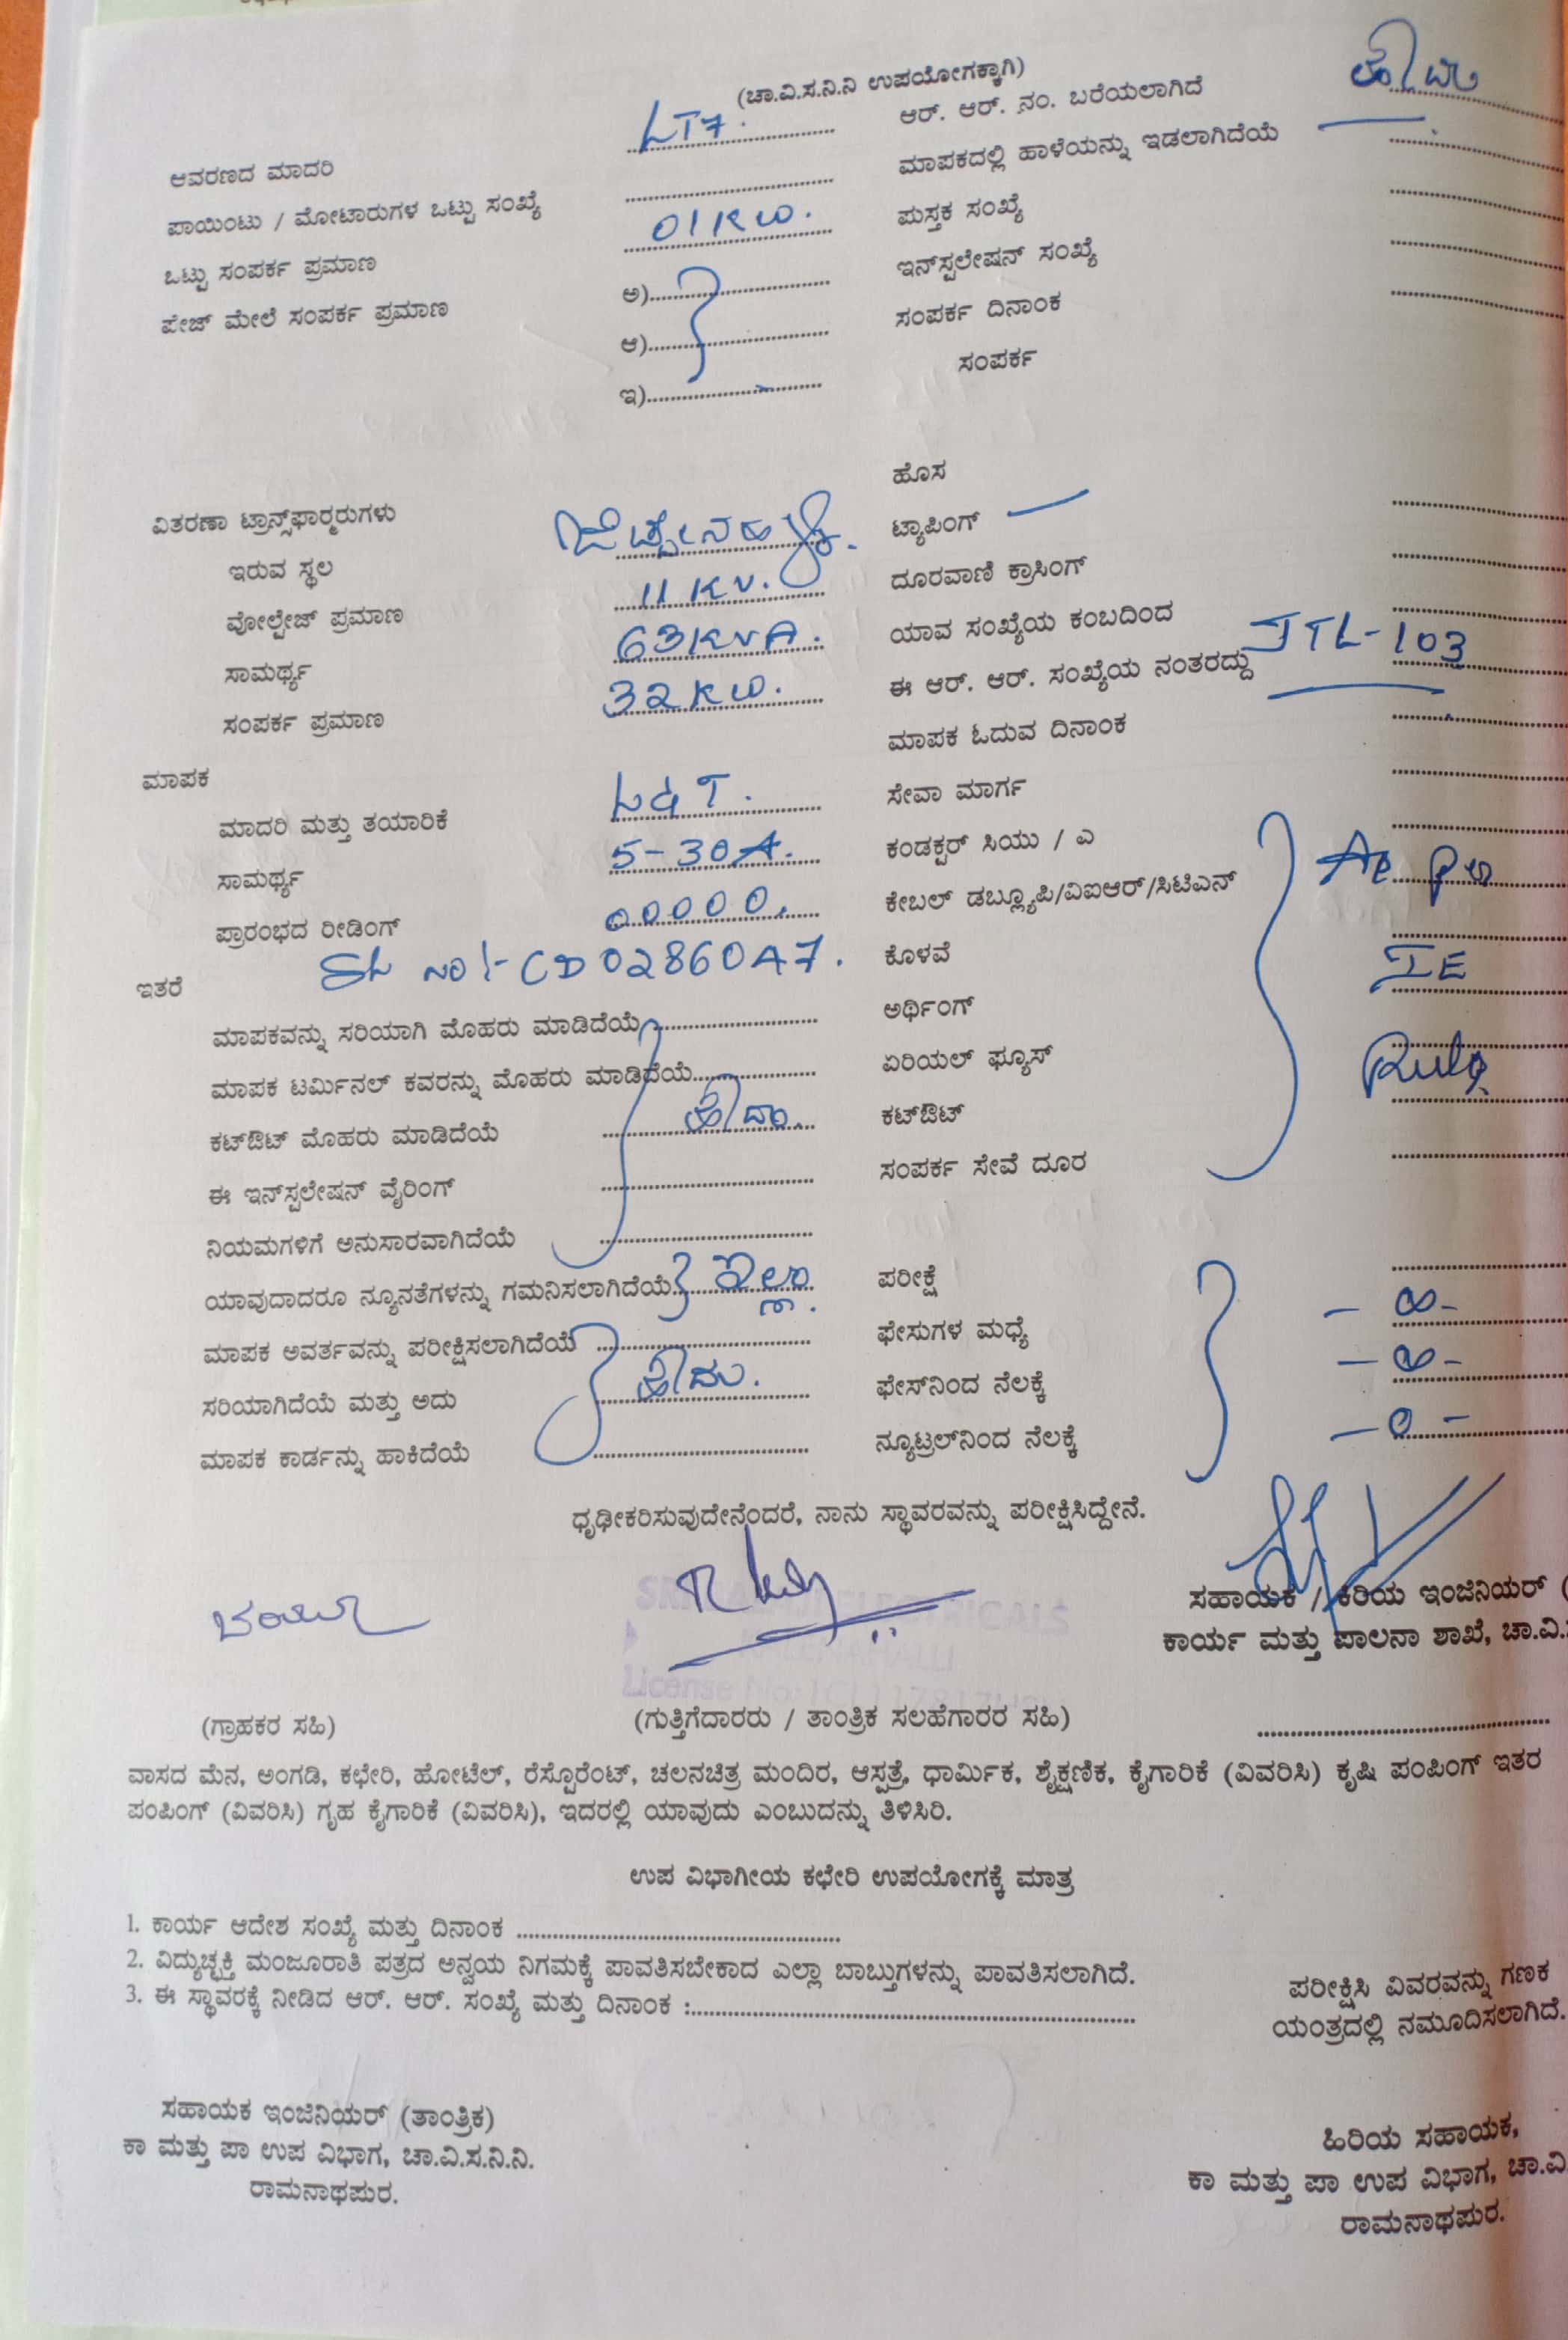 (ಚಾ.ವಿ.ಸ.ನಿ.ನಿ ಉಪಯೋಗಕ್ಕಾಗಿ)
ಆವರಣದ ಮಾದರಿ LT7.
ಪಾಯಿಂಟು / ಮೋಟಾರುಗಳ ಒಟ್ಟು ಸಂಖ್ಯೆ
ಒಟ್ಟು ಸಂಪರ್ಕ ಪ್ರಮಾಣ 01KW.
ಪೇಜ್ ಮೇಲೆ ಸಂಪರ್ಕ ಪ್ರಮಾಣ ಅ)
ಆ)
ಇ)
ಆರ್. ಆರ್. ನಂ. ಬರೆಯಲಾಗಿದೆ ಹೌದು
ಮಾಪಕದಲ್ಲಿ ಹಾಳೆಯನ್ನು ಇಡಲಾಗಿದೆಯೆ
ಪುಸ್ತಕ ಸಂಖ್ಯೆ
ಇನ್‌ಸ್ಟಲೇಷನ್ ಸಂಖ್ಯೆ
ಸಂಪರ್ಕ ದಿನಾಂಕ
ಸಂಪರ್ಕ
ವಿತರಣಾ ಟ್ರಾನ್ಸ್‌ಫಾರ್‍ಮರುಗಳು
ಇರುವ ಸ್ಥಳ
ವೋಲ್ಟೇಜ್ ಪ್ರಮಾಣ 11 KV.
ಸಾಮರ್ಥ್ಯ 63KVA.
ಸಂಪರ್ಕ ಪ್ರಮಾಣ 32KW.
ಮಾಪಕ
ಮಾದರಿ ಮತ್ತು ತಯಾರಿಕೆ L&T.
ಸಾಮರ್ಥ್ಯ 5-30A.
ಪ್ರಾರಂಭದ ರೀಡಿಂಗ್ 00000.
SL NO:- CD0286047.
ಇತರೆ
ಮಾಪಕವನ್ನು ಸರಿಯಾಗಿ ಮೊಹರು ಮಾಡಿದೆಯೆ
ಮಾಪಕ ಟರ್ಮಿನಲ್ ಕವರನ್ನು ಮೊಹರು ಮಾಡಿದೆಯೆ
ಕಟ್‌ಔಟ್ ಮೊಹರು ಮಾಡಿದೆಯೆ ಹೌದು.
ಈ ಇನ್‌ಸ್ಟಲೇಷನ್ ವೈರಿಂಗ್
ನಿಯಮಗಳಿಗೆ ಅನುಸಾರವಾಗಿದೆಯೆ
ಯಾವುದಾದರೂ ನ್ಯೂನತೆಗಳನ್ನು ಗಮನಿಸಲಾಗಿದೆಯೆ ಇಲ್ಲಾ.
ಮಾಪಕ ಅವರ್ತವನ್ನು ಪರೀಕ್ಷಿಸಲಾಗಿದೆಯೆ
ಸರಿಯಾಗಿದೆಯೆ ಮತ್ತು ಅದು ಹೌದು.
ಮಾಪಕ ಕಾರ್ಡನ್ನು ಹಾಕಿದೆಯೆ
ಹೊಸ
ಟ್ಯಾಪಿಂಗ್ —
ದೂರವಾಣಿ ಕ್ರಾಸಿಂಗ್
ಯಾವ ಸಂಖ್ಯೆಯ ಕಂಬದಿಂದ
ಈ ಆರ್. ಆರ್. ಸಂಖ್ಯೆಯ ನಂತರದ್ದು JTL-103
ಮಾಪಕ ಓದುವ ದಿನಾಂಕ
ಸೇವಾ ಮಾರ್ಗ
ಕಂಡಕ್ಟರ್ ಸಿಯು / ಎ
ಕೇಬಲ್ ಡಬ್ಲ್ಯೂಪಿ/ವಿಐಆರ್/ಸಿಟಿಎನ್
ಕೊಳವೆ IE
ಅರ್ಥಿಂಗ್
ಏರಿಯಲ್ ಫ್ಯೂಸ್ Rule
ಕಟ್‌ಔಟ್
ಸಂಪರ್ಕ ಸೇವೆ ದೂರ
ಪರೀಕ್ಷೆ
ಫೇಸುಗಳ ಮಧ್ಯೆ - ∞ -
ಫೇಸ್‌ನಿಂದ ನೆಲಕ್ಕೆ - ∞ -
ನ್ಯೂಟ್ರಲ್‌ನಿಂದ ನೆಲಕ್ಕೆ - 0 -
ಧೃಢೀಕರಿಸುವುದೇನೆಂದರೆ, ನಾನು ಸ್ಥಾವರವನ್ನು ಪರೀಕ್ಷಿಸಿದ್ದೇನೆ.
ಸಹಾಯಕ / ಕಿರಿಯ ಇಂಜಿನಿಯರ್ (
ಕಾರ್ಯ ಮತ್ತು ಪಾಲನಾ ಶಾಖೆ, ಚಾ.ವಿ.
(ಗ್ರಾಹಕರ ಸಹಿ)
(ಗುತ್ತಿಗೆದಾರರು / ತಾಂತ್ರಿಕ ಸಲಹೆಗಾರರ ಸಹಿ)
ವಾಸದ ಮೆನ, ಅಂಗಡಿ, ಕಛೇರಿ, ಹೋಟೆಲ್, ರೆಸ್ಟೊರೆಂಟ್, ಚಲನಚಿತ್ರ ಮಂದಿರ, ಆಸ್ಪತ್ರೆ, ಧಾರ್ಮಿಕ, ಶೈಕ್ಷಣಿಕ, ಕೈಗಾರಿಕೆ (ವಿವರಿಸಿ) ಕೃಷಿ ಪಂಪಿಂಗ್ ಇತರ
ಪಂಪಿಂಗ್ (ವಿವರಿಸಿ) ಗೃಹ ಕೈಗಾರಿಕೆ (ವಿವರಿಸಿ), ಇದರಲ್ಲಿ ಯಾವುದು ಎಂಬುದನ್ನು ತಿಳಿಸಿರಿ.
ಉಪ ವಿಭಾಗೀಯ ಕಛೇರಿ ಉಪಯೋಗಕ್ಕೆ ಮಾತ್ರ
1. ಕಾರ್ಯ ಆದೇಶ ಸಂಖ್ಯೆ ಮತ್ತು ದಿನಾಂಕ
2. ವಿದ್ಯುಚ್ಛಕ್ತಿ ಮಂಜೂರಾತಿ ಪತ್ರದ ಅನ್ವಯ ನಿಗಮಕ್ಕೆ ಪಾವತಿಸಬೇಕಾದ ಎಲ್ಲಾ ಬಾಬ್ತುಗಳನ್ನು ಪಾವತಿಸಲಾಗಿದೆ.
3. ಈ ಸ್ಥಾವರಕ್ಕೆ ನೀಡಿದ ಆರ್. ಆರ್. ಸಂಖ್ಯೆ ಮತ್ತು ದಿನಾಂಕ :
ಪರೀಕ್ಷಿಸಿ ವಿವರವನ್ನು ಗಣಕ
ಯಂತ್ರದಲ್ಲಿ ನಮೂದಿಸಲಾಗಿದೆ.
ಸಹಾಯಕ ಇಂಜಿನಿಯರ್ (ತಾಂತ್ರಿಕ)
ಕಾ ಮತ್ತು ಪಾ ಉಪ ವಿಭಾಗ, ಚಾ.ವಿ.ಸ.ನಿ.ನಿ.
ರಾಮನಾಥಪುರ.
ಹಿರಿಯ ಸಹಾಯಕ,
ಕಾ ಮತ್ತು ಪಾ ಉಪ ವಿಭಾಗ, ಚಾ.ವಿ
ರಾಮನಾಥಪುರ.